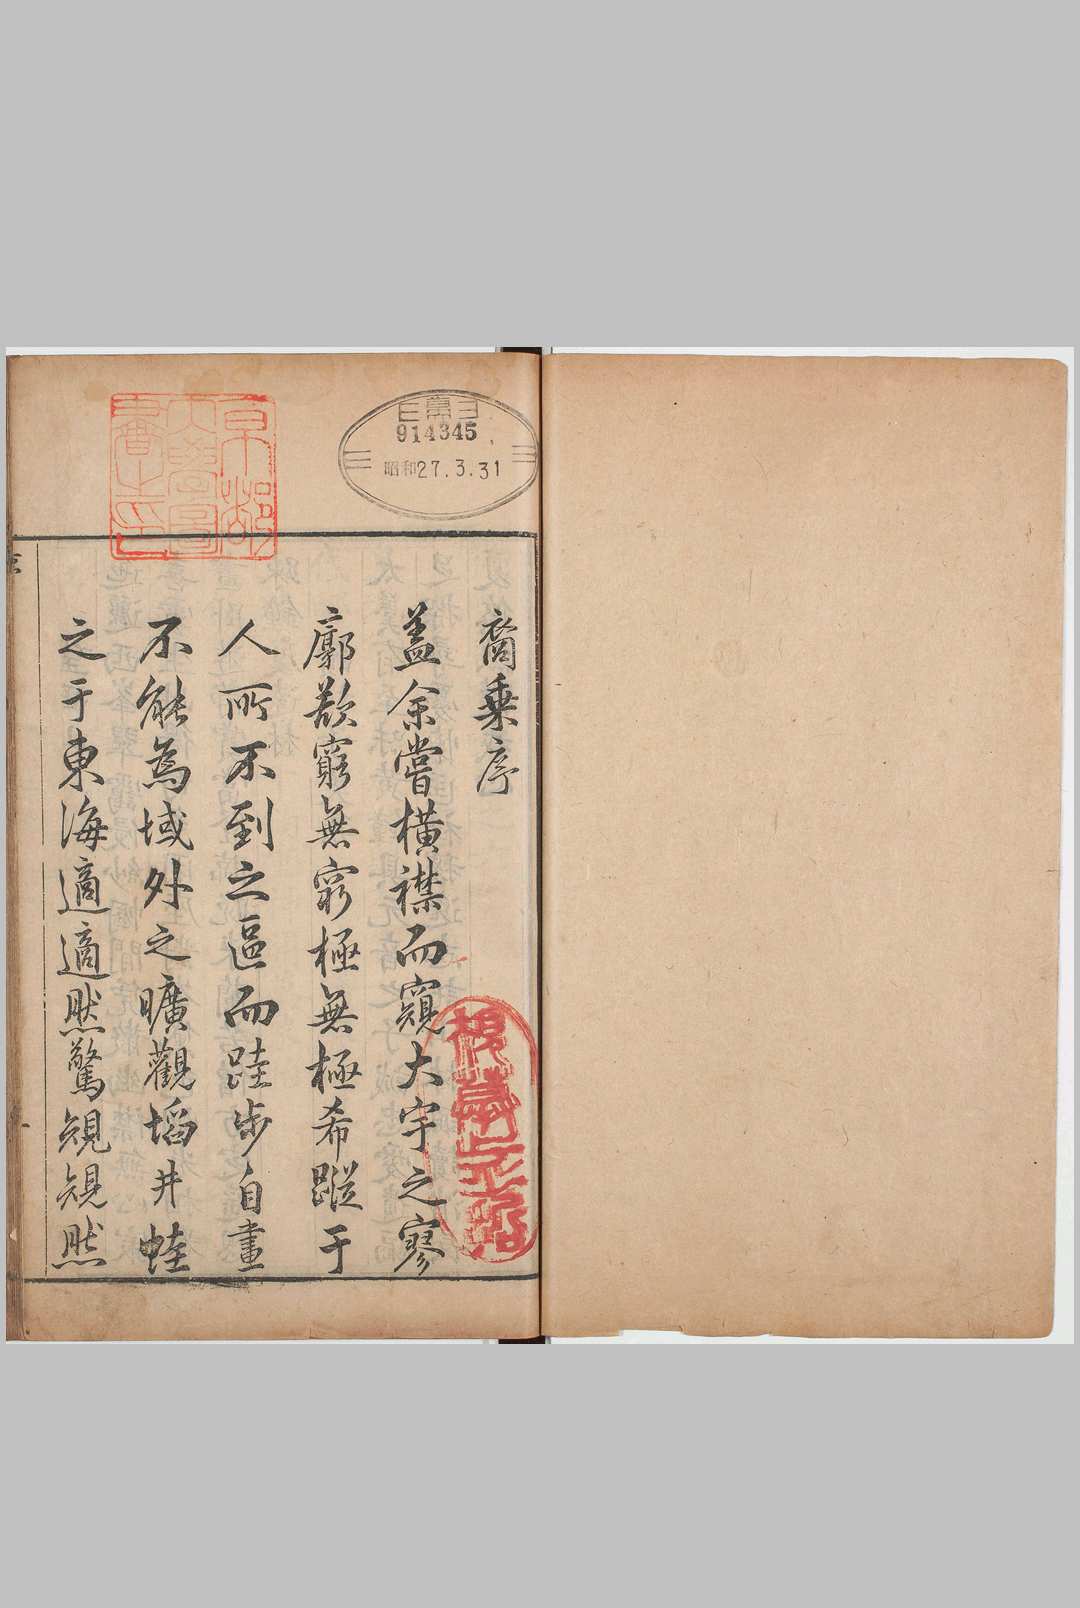 裔乗序
盖余嘗橫襟而窺大宇之寥
廓欲窮無窮極無極希蹤于
人所不到之區而跬步自畫
不能為域外之曠觀埳井蛙
之于東海適適然驚規規然
914345
昭和27.3.31
京都
大學圖
書之印